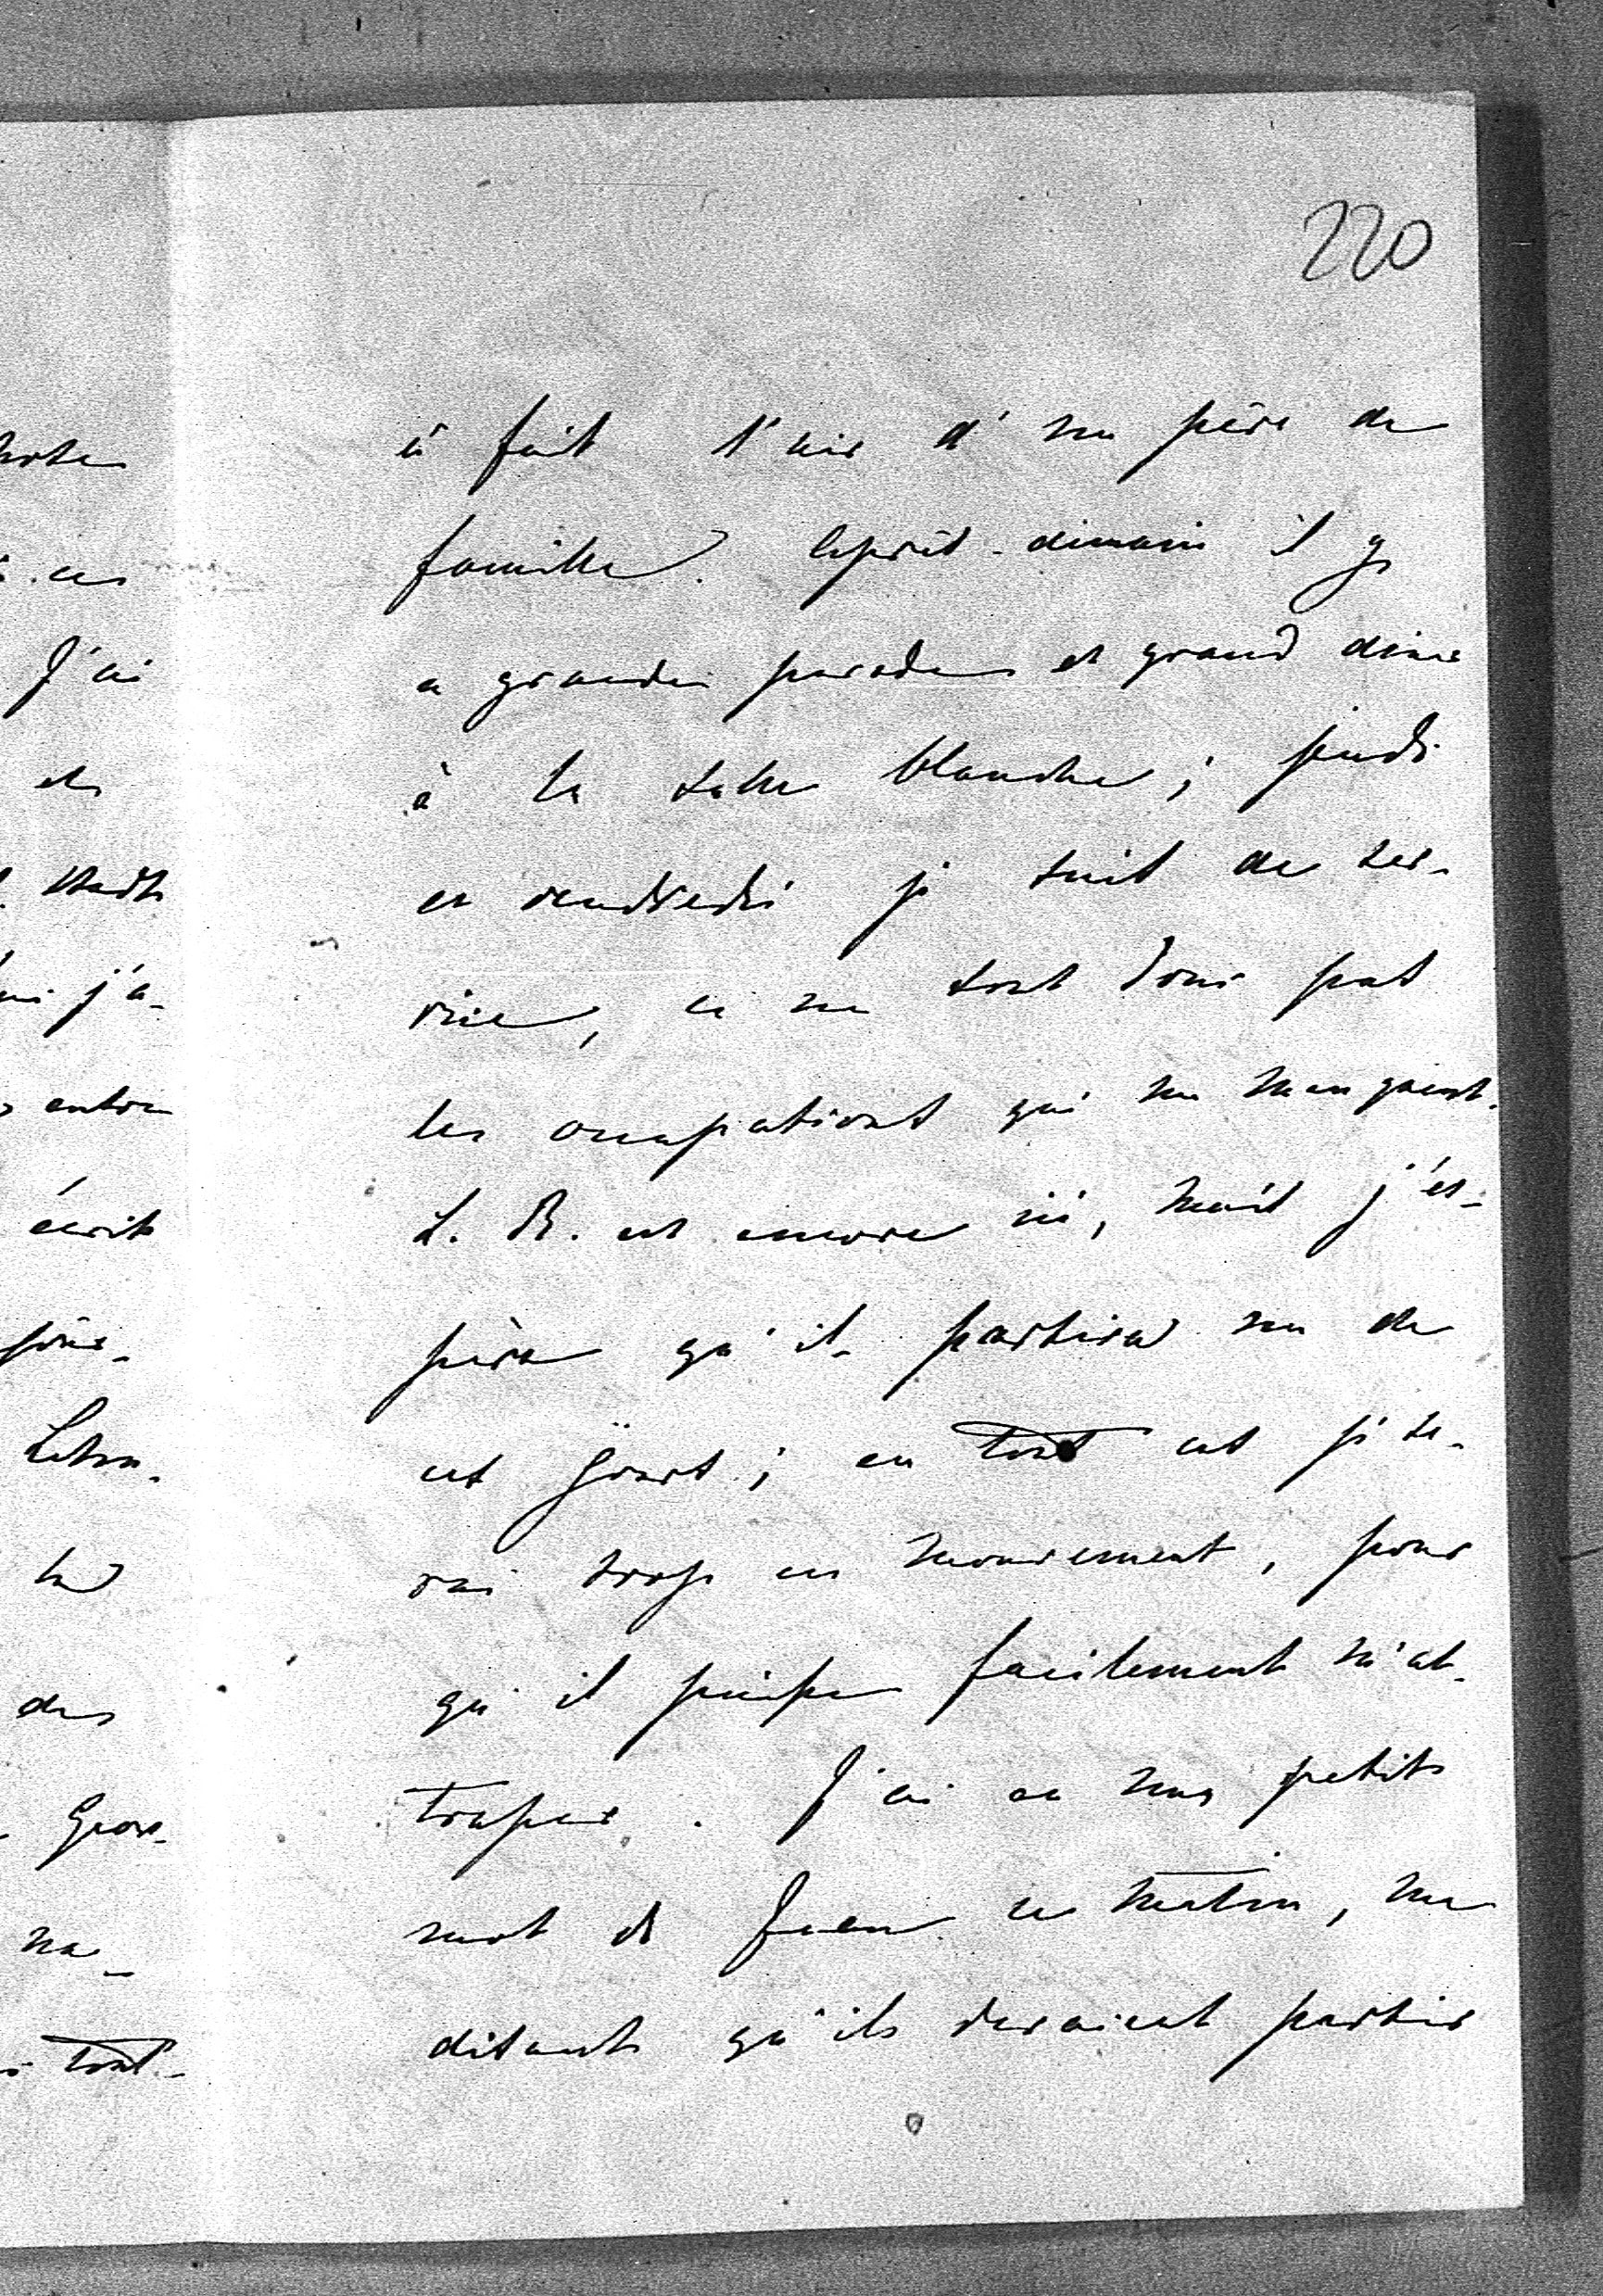 220
à fait l'air d'un père de
famille. Après-demain il y
a grande parade et grand dîner
à la salle blanche; jeudi
et vendredi je suis de ser-
vice, ce ne sont donc pas
les occupations qui me manquent.
L. R. est encore ici, mais j'es-
père qu'il partira un de
ces jours; en tout cas je se-
rai trop en mouvement, pour
qu'il puisse facilement m'at-
traper. J'ai eu un petit
mot de Jean ce matin, me
disant qu'ils devaient partir
J'ai
et
j'a-
entre
écrit
des
na-
tout-